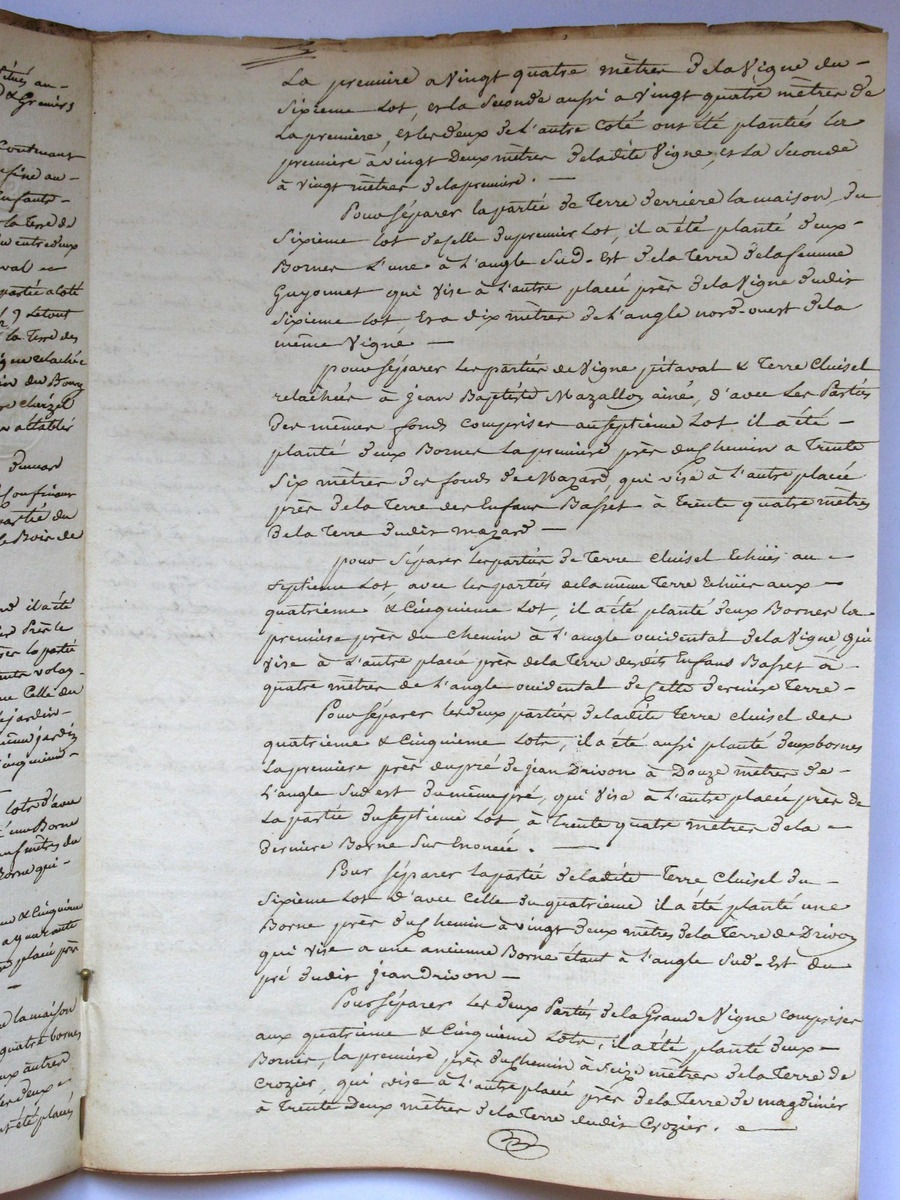 situés au-
& Greniers
Contenant
confine au-
Enfants-
la terre de
entre deux
val -
partie a côté
Letout
la Terre des
du Bourg
Dumas
Confineur
partie du
le Bois de
il a été
Près le
la partie
celle du
jardin-
jardin
Cinquieme-
lots d'avec
une Borne
mètres du
Borne qui-
& Cinquieme
a quarante
placé près
la maison
quatre bornes
aux autres
deux-
été placés
La premiere a Vingt quatre mètres de la Vigne du-
Sixieme Lot, et la Seconde aussi a Vingt quatre mètres de
La premiere, et les deux de l'autre Coté ont été plantées la
premiere à vingt deux mètres de la dite Vigne, et La Seconde
à vingt mètres de la premiere. -
Pour Séparer la partie de Terre derriere la maison, du
Sixieme Lot de Celle du premier Lot, il a été planté deux-
Bornes L'une à L'angle Sud-Est de la Terre de la femme
Guyonnet qui Vise à L'autre placée près de la Vigne dudit
Sixieme Lot Et a dix mètres de L'angle nord-ouest de la
même Vigne -
pour Séparer Les parties de Vigne pitaval & Terre Cluisel
relachées à Jean Baptiste Mazalloz ainé, d'avec Les Parties
Des mêmes fonds Comprises au Septieme Lot, il a été -
planté deux Bornes La premiere près du Chemin a Trente
Six mètres des fonds de Mazard, qui vise à L'autre placée
près de la Terre des Enfans Basset à Trente quatre mètres
de la Terre dudit mazard -
pour Séparer Les parties de Terre Cluisel Echües au -
Septieme Lot, avec les parties de la même Terre Echües aux -
quatrieme & Cinquieme Lot, il a été planté deux Bornes la
premiere près du Chemin à L'angle occidental de la Vigne, qui
Vise à L'autre placé près de la Terre desdits Enfans Basset à -
quatre mètres de L'angle occidental de Cette derniere Terre -
Pour Séparer les deux parties de la dite Terre Cluisel des
quatrieme & Cinquieme Lots, il a été aussi planté deux bornes
La premiere près du pré de Jean Drivon à Douze mètres de -
L'angle Sud est du même pré, qui Vise à L'autre placée près de
La partie du Septieme Lot à Trente quatre mètres de la -
derniere Borne Sus Enoncée. -
Pour Séparer La partie de la dite Terre Cluisel du -
Sixieme Lot d'avec Celle du quatrieme il a été planté une
Borne près du Chemin à vingt deux mètres de la Terre de Drivon
qui vise a une ancienne Borne étant à L'angle Sud-Est du
pré dudit Jean Drivon -
Pour Séparer Les deux Parties de la Grande Vigne Comprises
aux quatrieme & Cinquieme Lots, il a été planté deux -
Bornes, la premiere près du Chemin à Seize mètres de la Terre de
Crozier, qui vise à L'autre placé près de la Terre de magdinier
à Trente Deux mètres de la Terre dudit Crozier. -